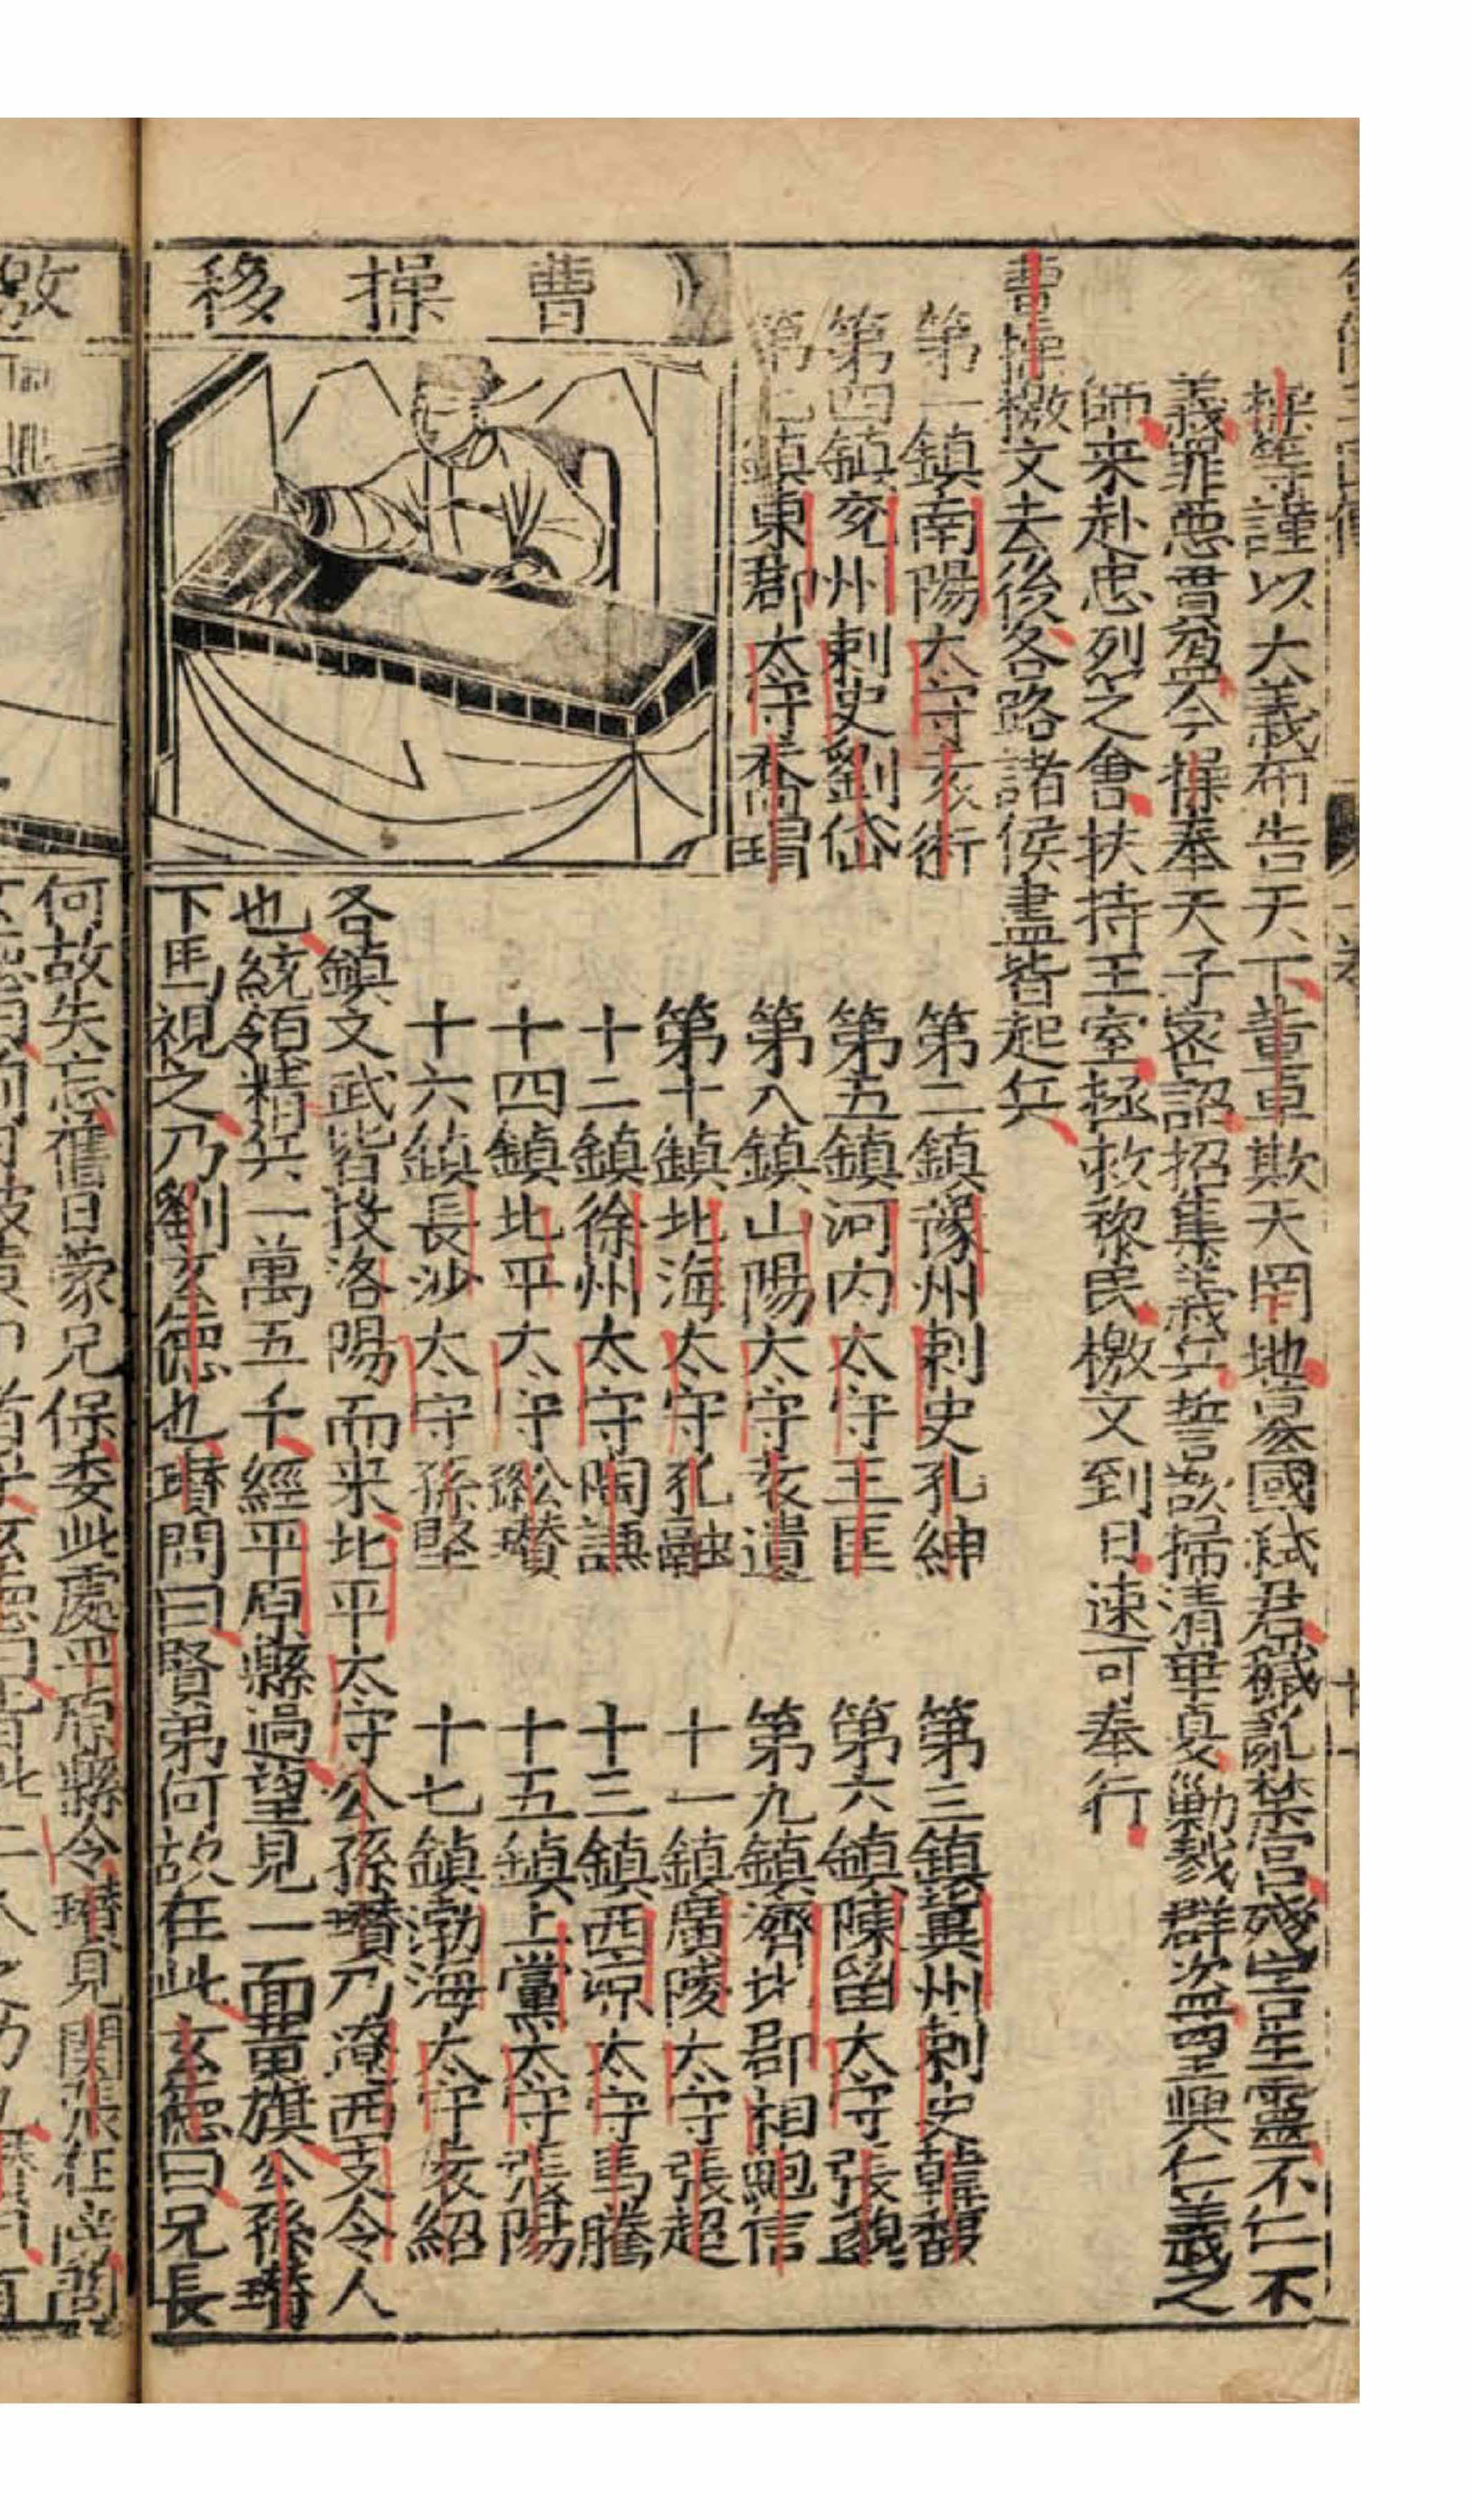 操等謹以大義布告天下董卓欺天罔地㓕國弑君穢亂禁宫残害生靈不仁不
義罪惡貫盈今操奉天子密詔招集義兵誓欲掃清華夏勦戮群盗望興仁義之
師来赴忠烈之會扶持王室拯救黎民檄文到日速可奉行
曹操檄文去後各路諸侯盡皆起兵
第一鎮南陽太守袁術 第二鎮豫州刺史孔紳 第三鎮冀州刺史韓馥
第四鎮兖州刺史劉岱 第五鎮河内太守王匡 第六鎮陳留太守張邈
第七鎮東郡太守喬瑁 第八鎮山陽太守袁遺 第九鎮濟北郡相鮑信
第十鎮北海太守孔融 十一鎮廣陵太守張超
十二鎮徐州太守陶謙 十三鎮西凉太守馬騰
十四鎮北平太守公孫瓚 十五鎮上黨太守張陽
十六鎮長沙太守孫堅 十七鎮渤海太守袁紹
曹操移
各鎮文武皆投洛陽而来北平太守公孫瓚乃遼西支令人
也統領精兵一萬五千經平原縣過望見一面黄旗公孫瓚
下馬視之乃劉玄德也瓚問曰賢弟何故在此玄德曰兄長
檄
何故失忘舊日蒙兄保委此處平原縣令瓚見関張在傍問